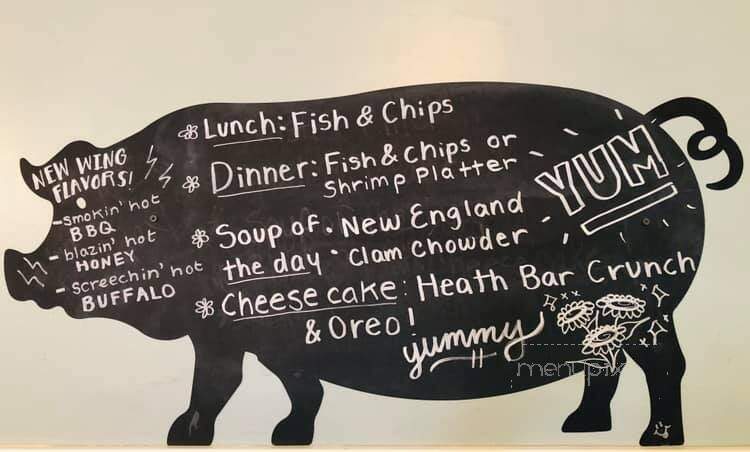 NEW WING
FLAVORS!
- smokin' hot
BBQ
- blazin' hot
HONEY
- screechin' hot
BUFFALO
Lunch: Fish & Chips
Dinner: Fish & Chips or
Shrimp Platter
Soup of New England
the day: Clam Chowder
Cheese cake: Heath Bar Crunch
& Oreo!
yummy
YUM
menupix